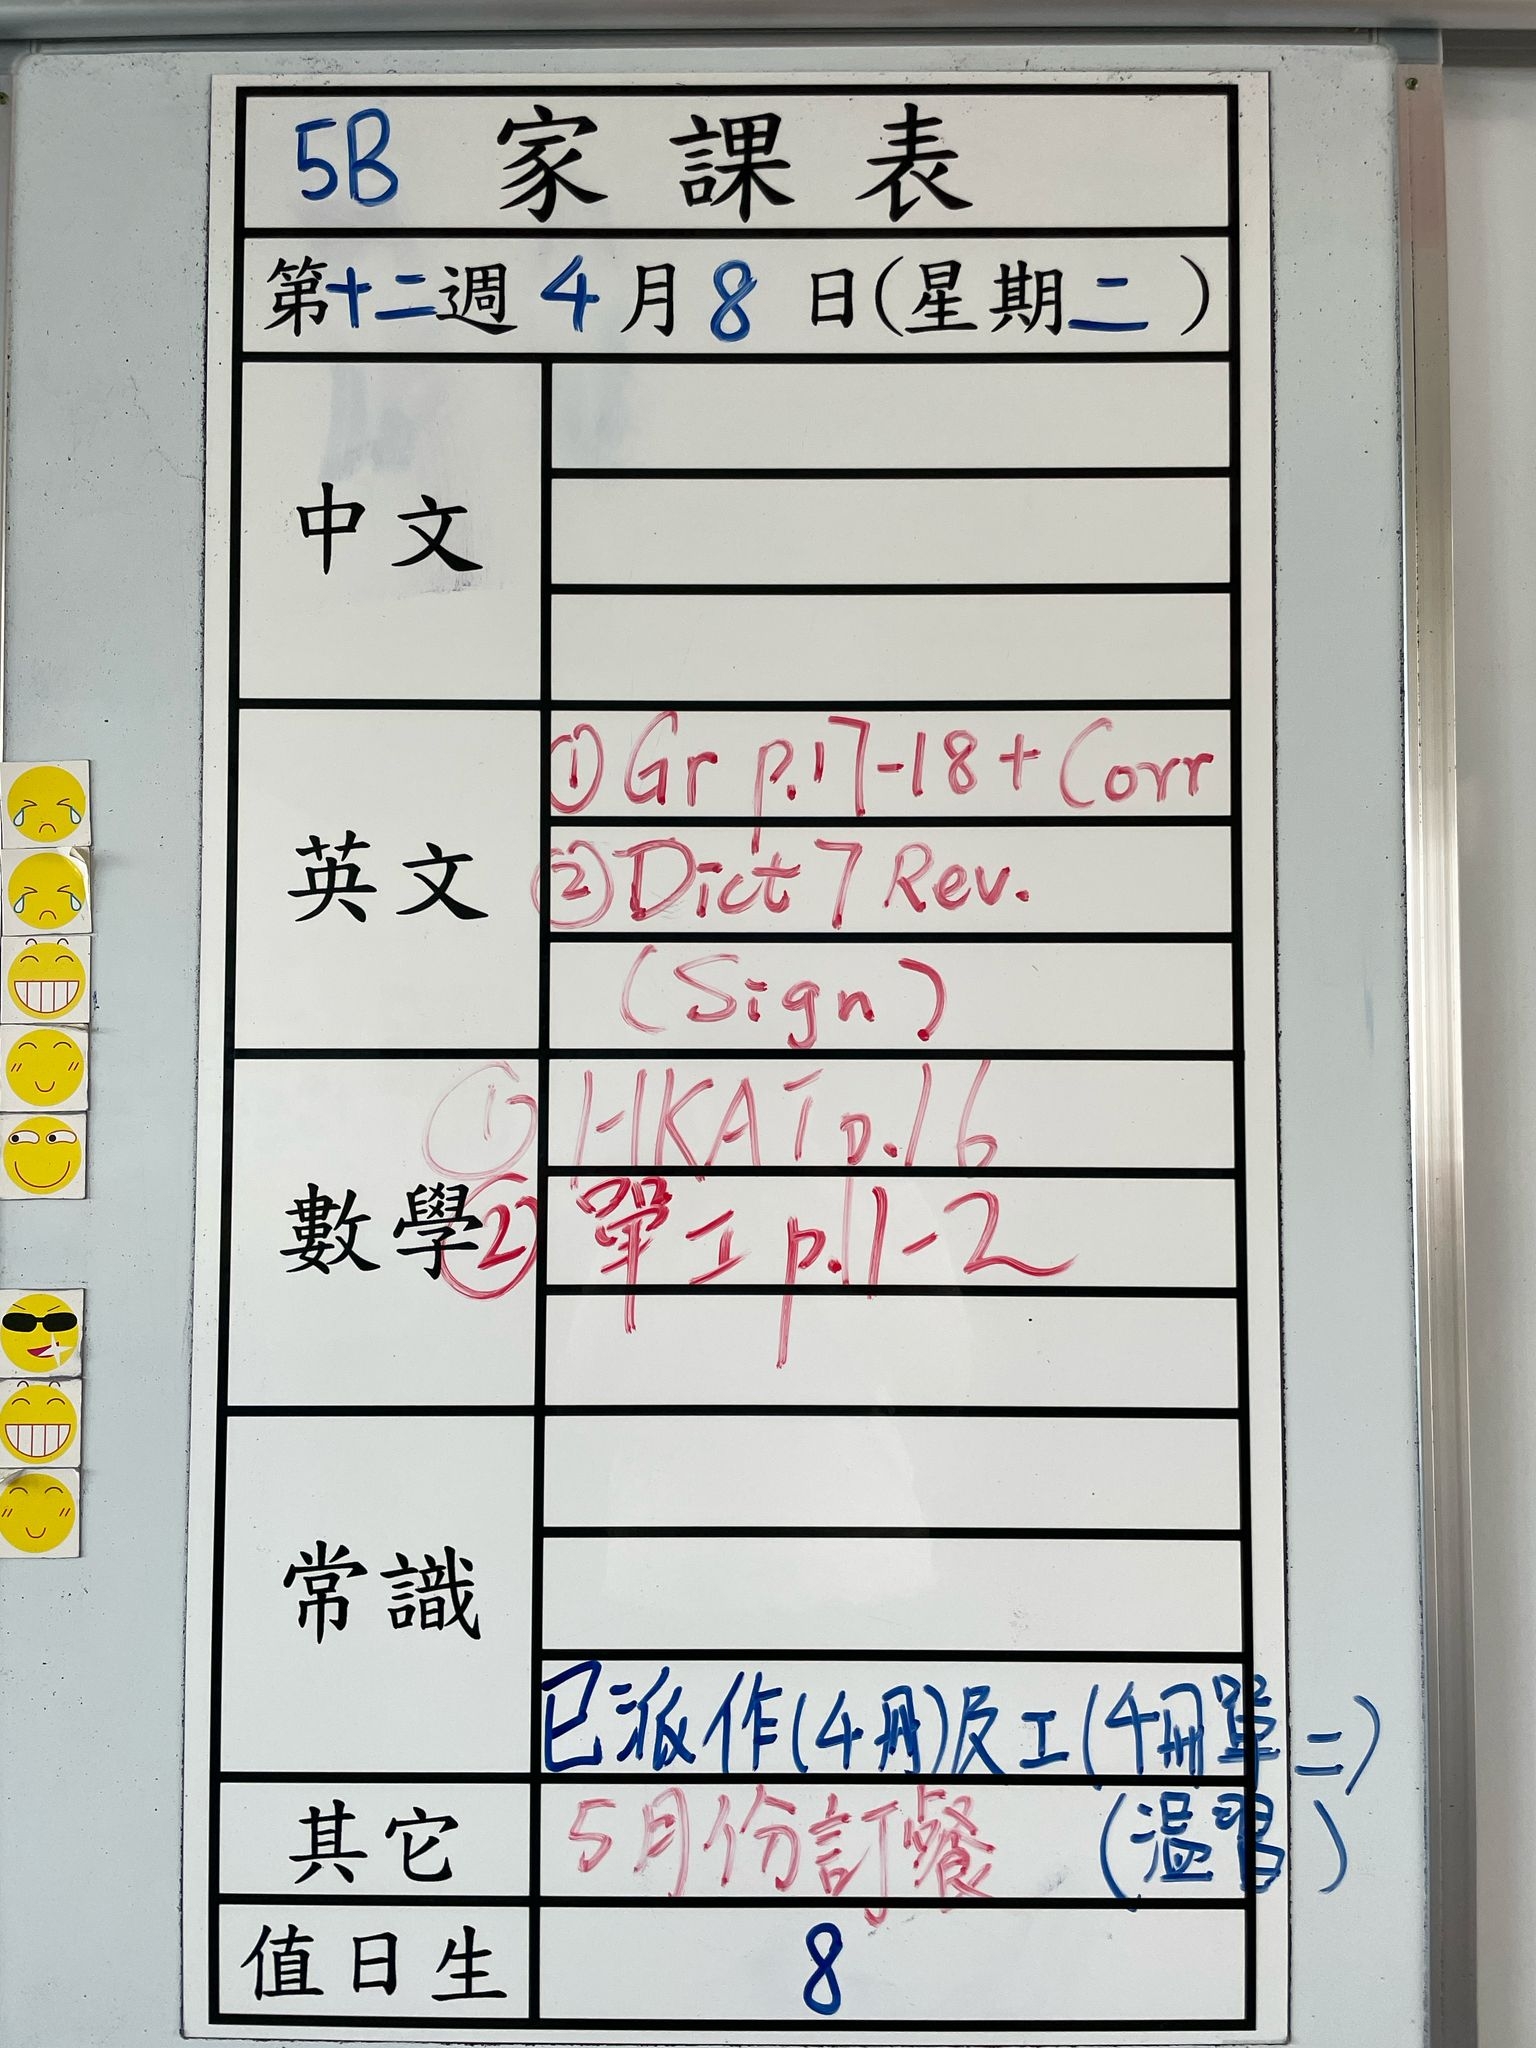 5B 家課表
第十二週 4月8日(星期二)
中文
英文
①Gr p.17-18+Corr
②Dict 7 Rev.
(Sign)
數學
① HKAT p.16
② 單工 p.1-2
常識
已派作(4冊)及工(4冊單二)
(溫習)
其它
5月份訂餐
值日生
8